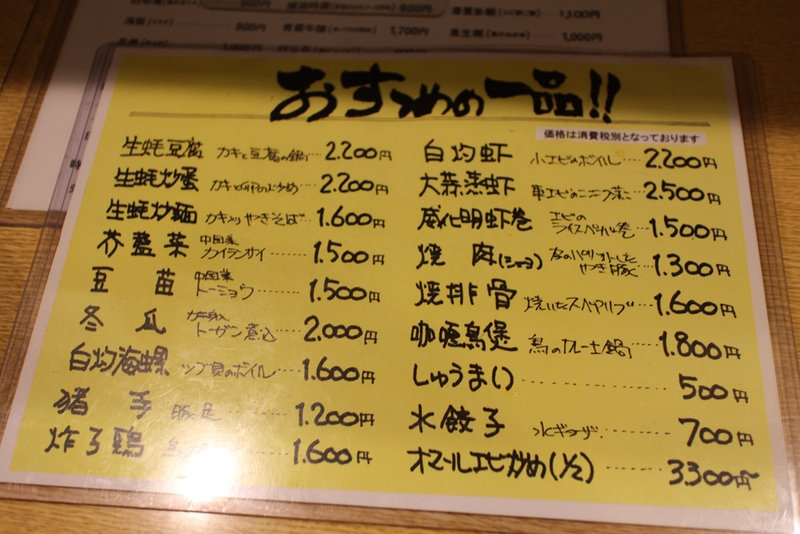 800円
800円
1,100円
海鮮
900円
1,700円
1,000円
おすすめの一品!!
価格は消費税別となっております
生蚝豆腐 カキと豆腐の鍋 2.200円
生蚝炒蛋 2.200円
生蚝炒麺 カキ入りやきそば 1.600円
芥藍菜 中国菜 カイランサイ 1.500円
豆苗 中国菜 トーミョウ 1.500円
冬瓜 トーガン煮込 2.000円
白灼海螺 ツブ貝のボイル 1.600円
猪手 豚足 1.200円
炸子鶏 1.600円
白灼虾 小エビのボイル 2.200円
大蒜蒸虾 車エビのニンニク蒸し 2.500円
威化明虾巻 エビのライスペーパー巻 1.500円
焼肉 皮のパリッとしたやき豚 1.300円
焼排骨 焼いたスペアリブ 1.600円
咖喱鳥煲 鳥のカレー土鍋 1.800円
しゅうまい 500円
水餃子 水ギョーザ 700円
オマールエビ炒め(1/2) 3.300円~